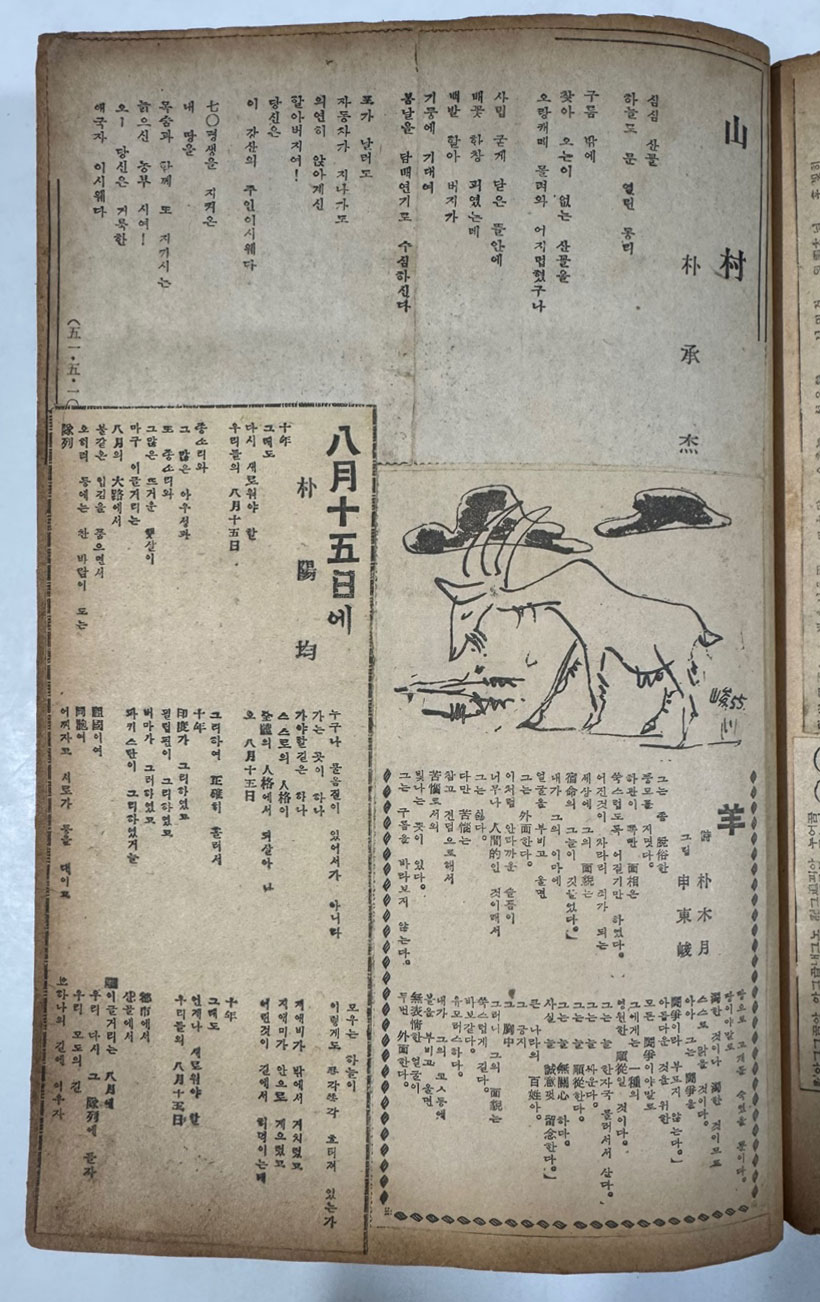 山村
朴承杰
심심 산꼴
하늘도 문 열린 동리
구름 밖에
찾아 오는이 없는 산꼴을
오랑캐떼 몰려와 어지럽혔구나
사립 굳게 닫은 뜰안에
배꽃 하창 피였는데
백발 할아 버지가
기둥에 기대여
봄날을 담배연기로 수심하신다
포가 날러도
자동차가 지나가도
의연히 앉아계신
할아버지여!
당신은
이 강산의 주인이시웨다
七〇평생을 지켜온
내 땅을
목숨과 함께 또 지키시는
늙으신 농부 시여!
오ㅡ 당신은 거룩한
애국자 이시웨다
(五一・五・一〇
八月十五日에
朴陽均
十年
그때도
다시 새로워야 할
우리들의 八月十五日
종소리와
그 많은 아우성과
또 종소리와
그많은 뜨거운 햇살이
마구 이글거리는
八月의 大路에서
불같은 입김을 뿜으면서
오히려 등에는 찬 바람이 도는
隊列
누구나 몰음길이 있어서가 아니다
가는 곳이 하나
가야할길은 하나
스스로의 人格이
全體의 人格에서 되살아 나
오 八月十五日
그리하여 正確히 흘러서
十年
印度가 그리하였고
필립핀이 그리하였고
버마가 그러하였고
파키스탄이 그리하였거늘
祖國이여
同胞여
어찌자고 서로가 등을 대이고
모우는 하늘이
이렇게도 쪽각쪽각 흐터져 있는가
계엑비가 밖에서 거칠렀고
지엑미가 안으로 게으렀고
어린것이 길에서 허덕이는데
十年
그때도
언제나 새로워야 할
우리들의 八月十五日
都市에서
산꼴에서
이글거리는 八月에
우리 다시 그 隊列에 끌자
우리 모도의 길
오하나의 길에 이우자
羊
詩 朴木月
그림 申東峻
그는 좀 脫俗한
풍모를 지녔다。
하관이 쪽 빤 面相은
쑥스럽도록 어질기만 하였다。
어진것이 차라리 죄가 되는
세상에 그의 面貌는
宿命의 그늘이 짓들었다。
내가 그의 이마에
얼굴을 부비고 울면
그는 外面한다。
이처럼 안타까운 슬픔이
너무나 人間的인 것이래서
그는 싫다。
다만 苦惱는
참고 견덤으로해서
苦惱로서의
빛나는 뜻이 있다。
그는 구름을 바라보지 않는다。
땅으로 고개를 숙였을 뿐이다。
땅이야말로
濁한 것이나 濁한 것이므로
스스로 맑을 것이다。
아아 그는 鬪爭을
鬪爭이라 부르지 않는다。
아름다운 것을 위한
모든 鬪爭이야말로
그에게는 一種의
영원한 順從일 것이다。
그는 늘 한자국 물러서서 산다。
그는 늘 順從한다。
그는 늘 싸운다。
그는 늘 無關心 하다。
사실 늘 誠意껏 留念한다。
큰 나라의 百姓아。
그 긍지
그 胸中
그러나 그의 面貌는
쑥스럽게 길다。
바보같다。
유모러스하다。
내가 그의 코ㅅ등에
볼을 부비고 울면
無表情한 얼굴이
두번 外面한다。
55.